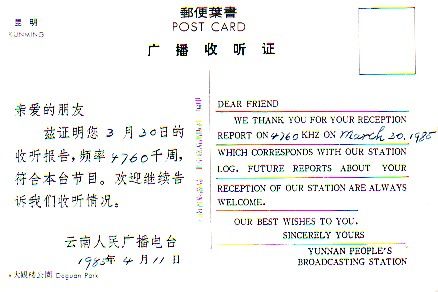 昆明
KUNMING
郵便葉書
POST CARD
广播收听证
亲爱的朋友
兹证明您 3 月 20 日的
收听报告，频率 4760 千周，
符合本台节目。欢迎继续告
诉我们收听情况。
云南人民广播电台
1985 年 4 月 11 日
大观楼公園 Daguan Park
DEAR FRIEND
WE THANK YOU FOR YOUR RECEPTION
REPORT ON 4760 KHZ ON March 20. 1985
WHICH CORRESPONDS WITH OUR STATION
LOG. FUTURE REPORTS ABOUT YOUR
RECEPTION OF OUR STATION ARE ALWAYS
WELCOME.
OUR BEST WISHES TO YOU.
SINCERELY YOURS
YUNNAN PEOPLE'S
BROADCASTING STATION